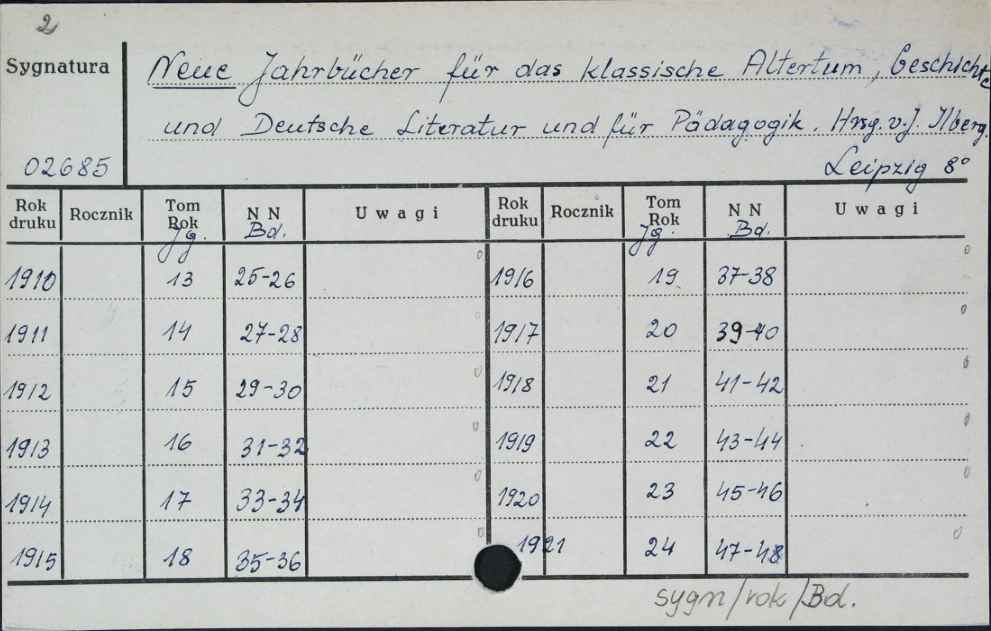 2
Sygnatura
Neue Jahrbücher für das klassische Altertum, Geschichte
und Deutsche Literatur und für Pädagogik. Hrsg. v. J. Ilberg.
02685
Leipzig 8°
Rok druku Rocznik Tom Rok Jg. N N Bd. Uwagi Rok druku Rocznik Tom Rok Jg. N N Bd. Uwagi
1910 13 25-26 0 1916 19 37-38 0
1911 14 27-28 0 1917 20 39-40 0
1912 15 29-30 0 1918 21 41-42 0
1913 16 31-32 0 1919 22 43-44 0
1914 17 33-34 0 1920 23 45-46 0
1915 18 35-36 0 1921 24 47-48 0
sygn/rok/Bd.